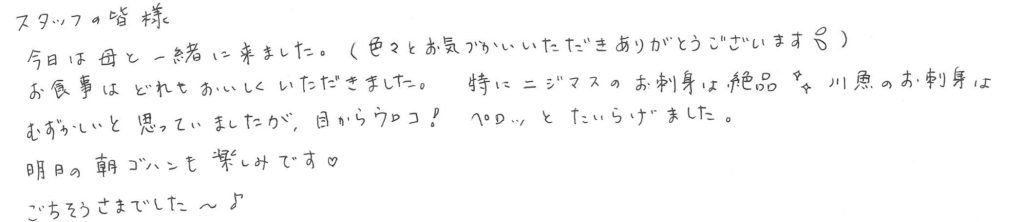 スタッフの皆様
今日は母と一緒に来ました。(色々とお気づかいいただきありがとうございます)
お食事はどれもおいしくいただきました。 特にニジマスのお刺身は絶品 川魚のお刺身は
むずかしいと思っていましたが、目からウロコ! ペロッとたいらげました。
明日の朝ゴハンも楽しみです♡
ごちそうさまでした〜♪